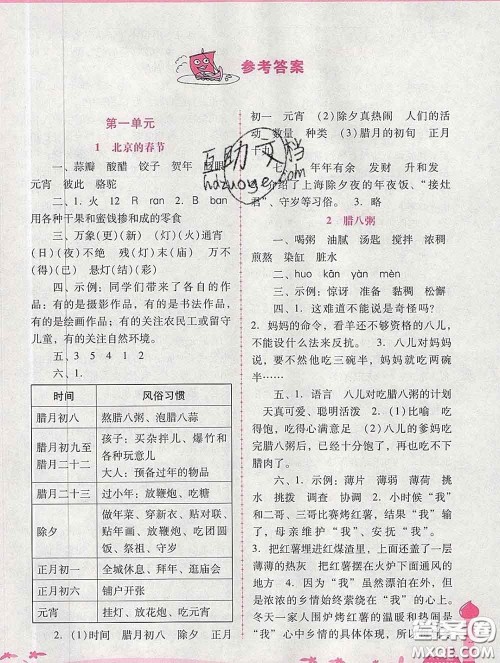 参考答案
第一单元
1 北京的春节
一、蒜瓣 酸醋 饺子 贺年
元宵 彼此 骆驼
二、1. 火 12 R 2. B ban
用各种干果和蜜饯掺和成的零食
三、万象(更)(新) (灯)(火)通宵
(日)(夜)不绝 残(灯)末(庙) 万
(不)(得)已 悬灯(结)(彩)
四、示例：同学们带来了各自的作
品：有的是摄影作品，有的是书法作品，
有的是绘画作品；有的关注农民工或留守
儿童，有的关注自然环境。
五、3 5 4 1 2
六、1.
时间 风俗习惯
腊月初八 熬腊八粥、泡腊八蒜
腊月初九至
腊月二十二
孩子：买杂拌儿、爆竹和
各种玩意儿
大人：预备过年的物品
腊月二十三 过小年：放鞭炮、吃糖
除夕
做年菜、穿新衣、贴对联、
贴年画、放鞭炮、吃团圆
饭、祭祖、守岁
正月初一 全城休息、拜年、逛庙会
正月初六 铺户开张
元宵 挂灯、放花炮、吃元宵
2. (1)时间 腊月初八 除夕 正月
初一 元宵 (2)除夕真热闹 人们的活
动 数量 种类 (3)腊月的初旬 正月
七、 年年有余 发财 升和发
介绍了上海除夕夜的年夜饭、“接灶
君”、守岁等习俗。 3. 略
2 腊八粥
一、喝粥 油腻 汤匙 搅拌 浓稠
煎熬 染缸 脏水
二、huo kān yàn mèn
三、示例：惊讶 准备 黏稠 松懈
四、1. 这难道不能说是奇怪吗？
2. 妈妈的命令，看羊还不够资格的八儿，
不能设什么法来反抗。 3. 八儿对妈妈
说，要不然他吃三碗半，妈妈就吃两碗半。
五、1. 语言 八儿对吃腊八粥的计划
天真可爱、聪明活泼 2. (1)比喻 吃
得饱，吃得心满意足 (2)八儿的爹妈吃
完腊八粥后，已经十分饱了，再也吃不下
腊肉了。
六、1. 示例：薄片 薄弱 薄荷 挑
水 挑拨 调查 协调 2. 小时候“我”
和二哥、三哥比赛烤红薯，结果“我”输
了，母亲维护了“我”、安慰了“我”。
3. 把红薯埋进红煤渣里，上面还盖了一层
薄薄的热灰 把红薯摆在火炉下面通风
大的地方 4. “我”虽然漂泊在外，但
浓浓的乡情始终萦绕在“我”心上。冬天
一家人围炉烤红薯的温暖和热闹是
“我”心中乡情的具体体现，所以
互助文档
hozuoye.com
答案圈
MXQE.COM